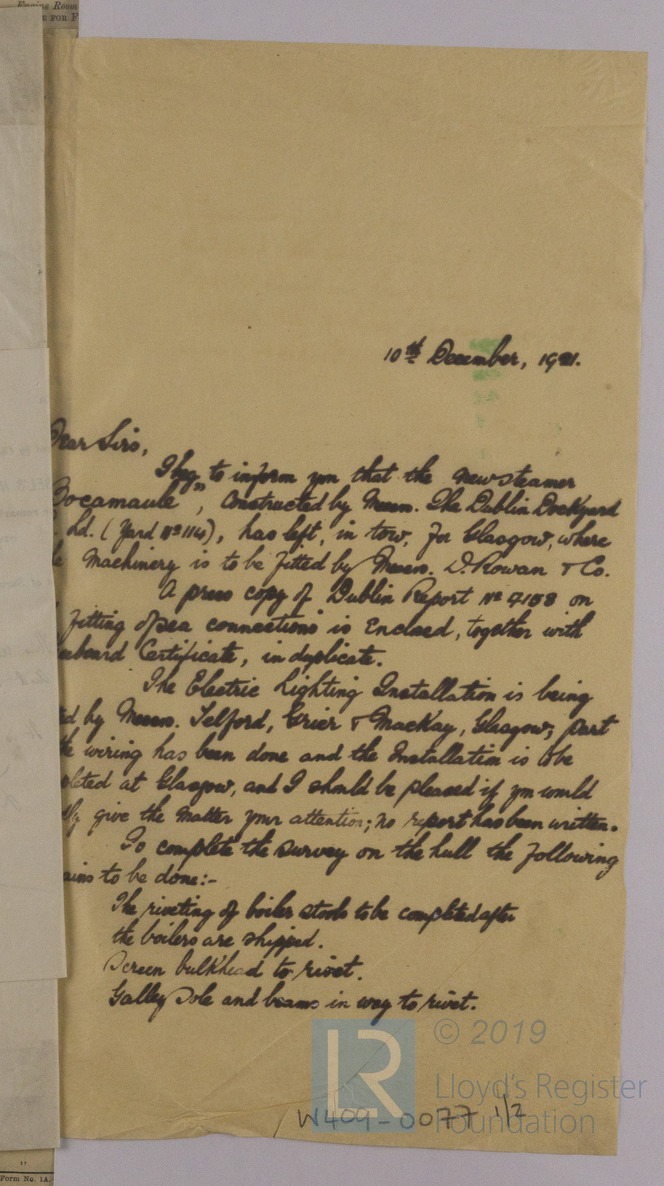 Engine Room
FOR F
10th December, 1921.
Dear Sirs,
I beg to inform you that the new steamer
Bocamaule", Constructed by Messrs. The Dublin Dockyard
Ld. (Yard No 114), has left, in tow, for Glasgow, where
Machinery is to be fitted by Messrs. D. Rowan & Co.
A press copy of Dublin Report No 7158 on
fitting of sea connections is Enclosed, together with
eeboard Certificate, in duplicate.
The Electric Lighting Installation is being
ed by Messrs. Telford, Grier & Mackay, Glasgow, part
wiring has been done and the Installation is to be
pleted at Glasgow, and I should be pleased if you would
dly give the matter your attention; no report has been written.
To complete the survey on the hull the following
ains to be done:-
The riveting of boiler stools to be completed after
the boilers are shipped.
Screen bulkhead to rivet.
Galley Sole and beams in way to rivet.
© 2019
LR
Lloyd's Register
Foundation
W409-0077 1/2
"
Form No. 1A.